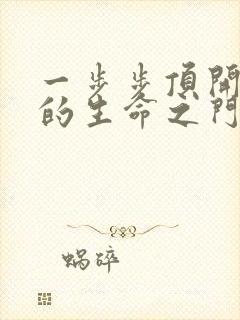 一步步頂開
的生命之門
蝸碎